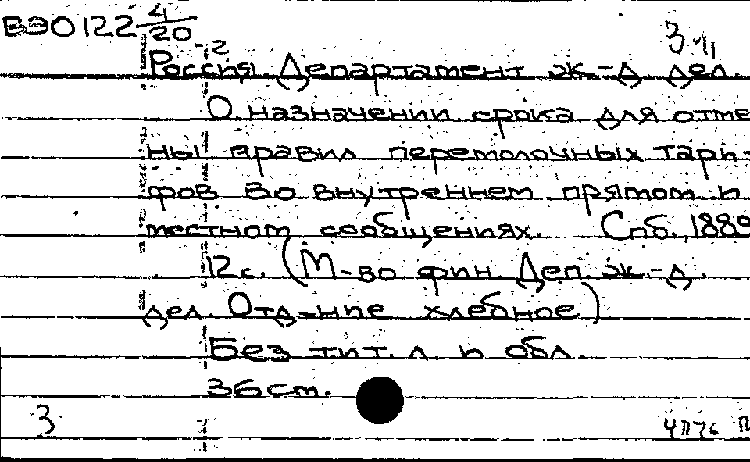 ВЭО 122 4/20
2
Россия. Департамент ж.-д. дел.
О назначении срока для отме
ны правил перемолочных тари-
фов во внутреннем прямом и
местном сообщениях. Спб., 1889
12 с. (М-во фин. Деп. ж.-д.
дел. Отд-ние хлебное)
Без тит. л. и обл.
36 см.
3